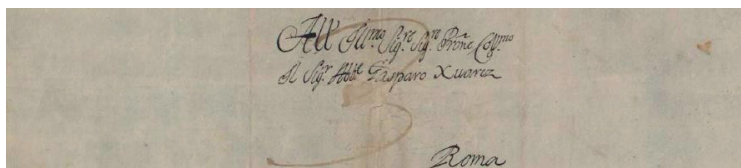 All' Ill.mo Sig.re Sig.re Prône Col.mo
Il Sig.r Abb.e Gasparo Xuarez
Roma